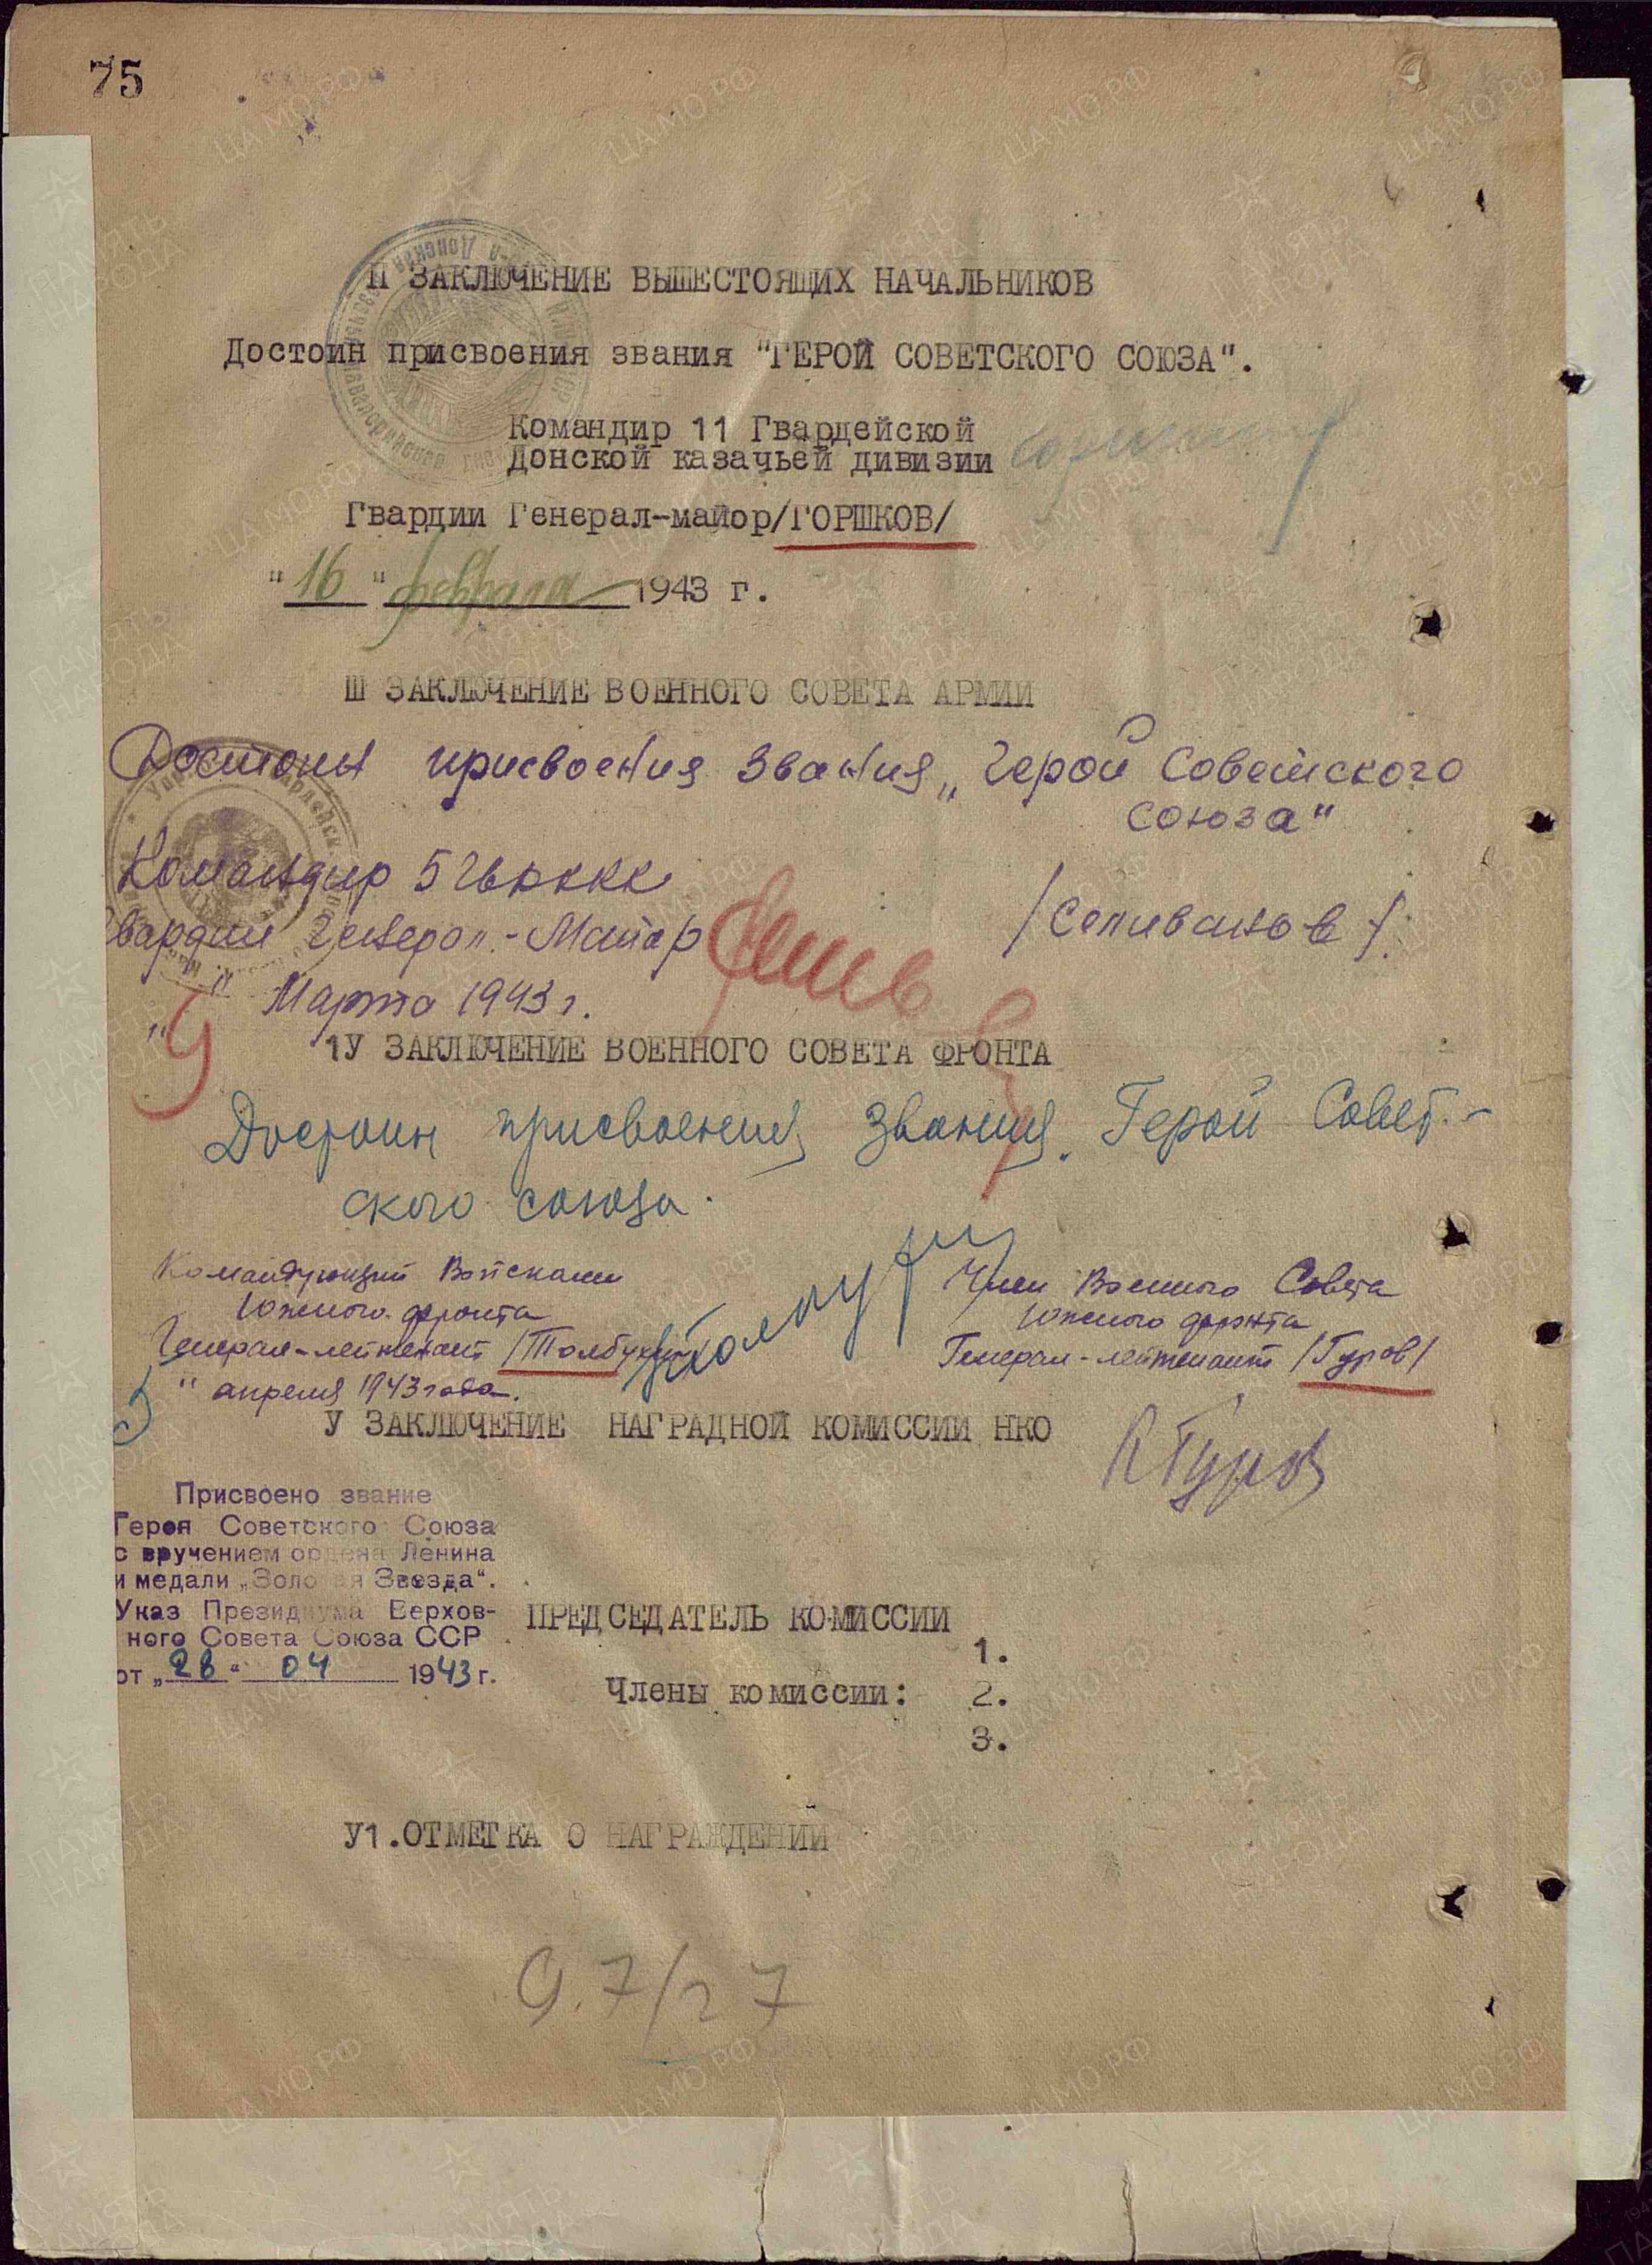 75
II ЗАКЛЮЧЕНИЕ ВЫШЕСТОЯЩИХ НАЧАЛЬНИКОВ
Достоин присвоения звания "ГЕРОЙ СОВЕТСКОГО СОЮЗА".
Командир 11 Гвардейской
Донской казачьей дивизии
Гвардии Генерал-майор/ГОРШКОВ/
"16" февраля 1943 г.
Ш ЗАКЛЮЧЕНИЕ ВОЕННОГО СОВЕТА АРМИИ
Достоин присвоения звания „Герой Советского
союза"
Командир 5 гв
Гвардии Генерал.-Майор /Селиванов/.
"9" Марта 1943 г.
1У ЗАКЛЮЧЕНИЕ ВОЕННОГО СОВЕТА ФРОНТА
Достоин присвоения звания „Герой Совет-
ского союза.
Командующий Войсками
Южного фронта
Генерал-лейтенант /Толбухин
" апреля 1943 года.
Член Военного Совета
Южного фронта
Генерал-лейтенант /Гуров/
КГуров
У ЗАКЛЮЧЕНИЕ НАГРАДНОЙ КОМИССИИ НКО
Присвоено звание
Героя Советского Союза
с вручением ордена Ленина
и медали „Золотая Звезда".
Указ Президиума Верхов-
ного Совета Союза ССР
от „28" 04 1943 г.
ПРЕДСЕДАТЕЛЬ КОМИССИИ
1.
Члены комиссии: 2.
3.
У1.ОТМЕТКА О НАГРАЖДЕНИИ